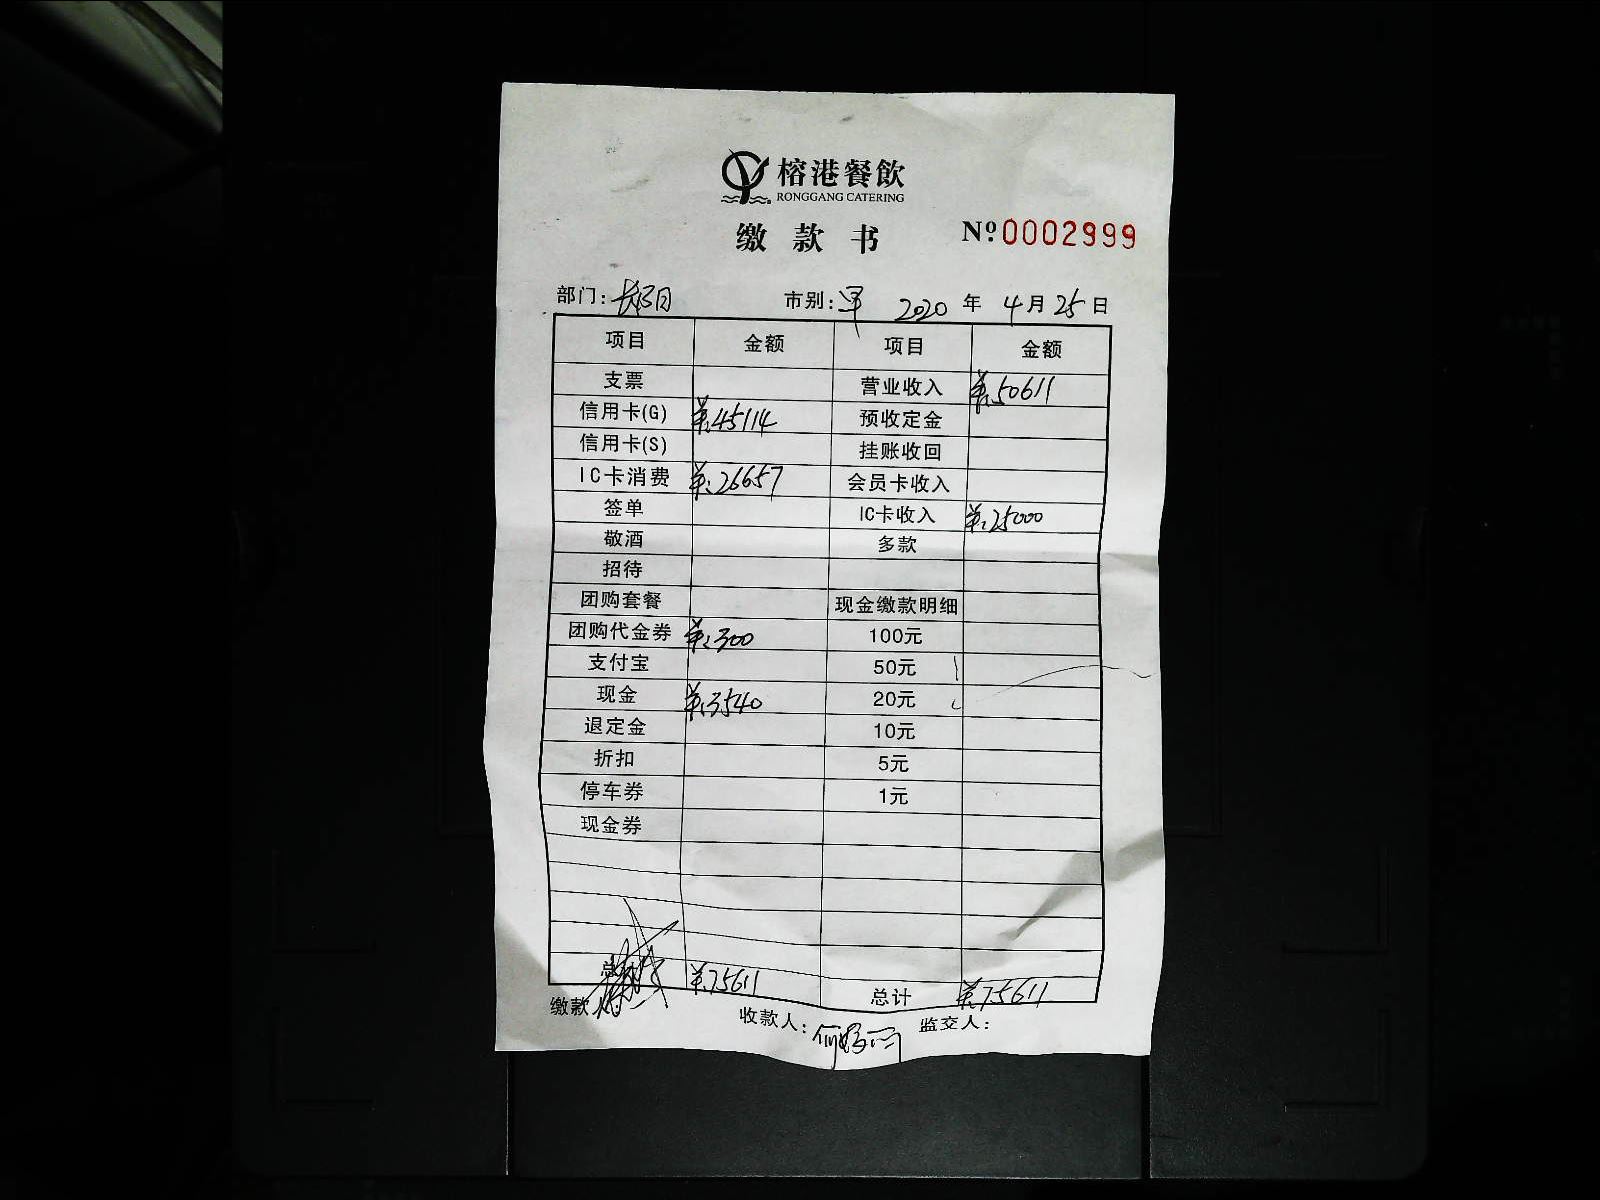 榕港餐飲
RONGGANG CATERING
缴款书 Nº 0002999
部门: 市别: 2020 年 4 月 25 日
项目 金额 项目 金额
支票 营业收入 ¥:50611
信用卡(G) ¥:45114 预收定金
信用卡(S) 挂账收回
IC卡消费 ¥:26657 会员卡收入
签单 IC卡收入 ¥:25000
敬酒 多款
招待
团购套餐 现金缴款明细
团购代金券 ¥:300 100元
支付宝 50元
现金 ¥:3540 20元
退定金 10元
折扣 5元
停车券 1元
现金券
总 ¥:75611 总计 ¥:75611
缴款人: 收款人: 监交人: